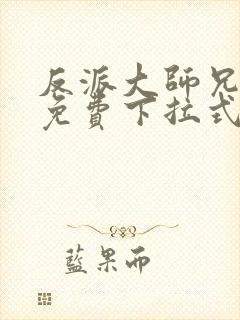 反派大師兄
免費下拉式
藍果而